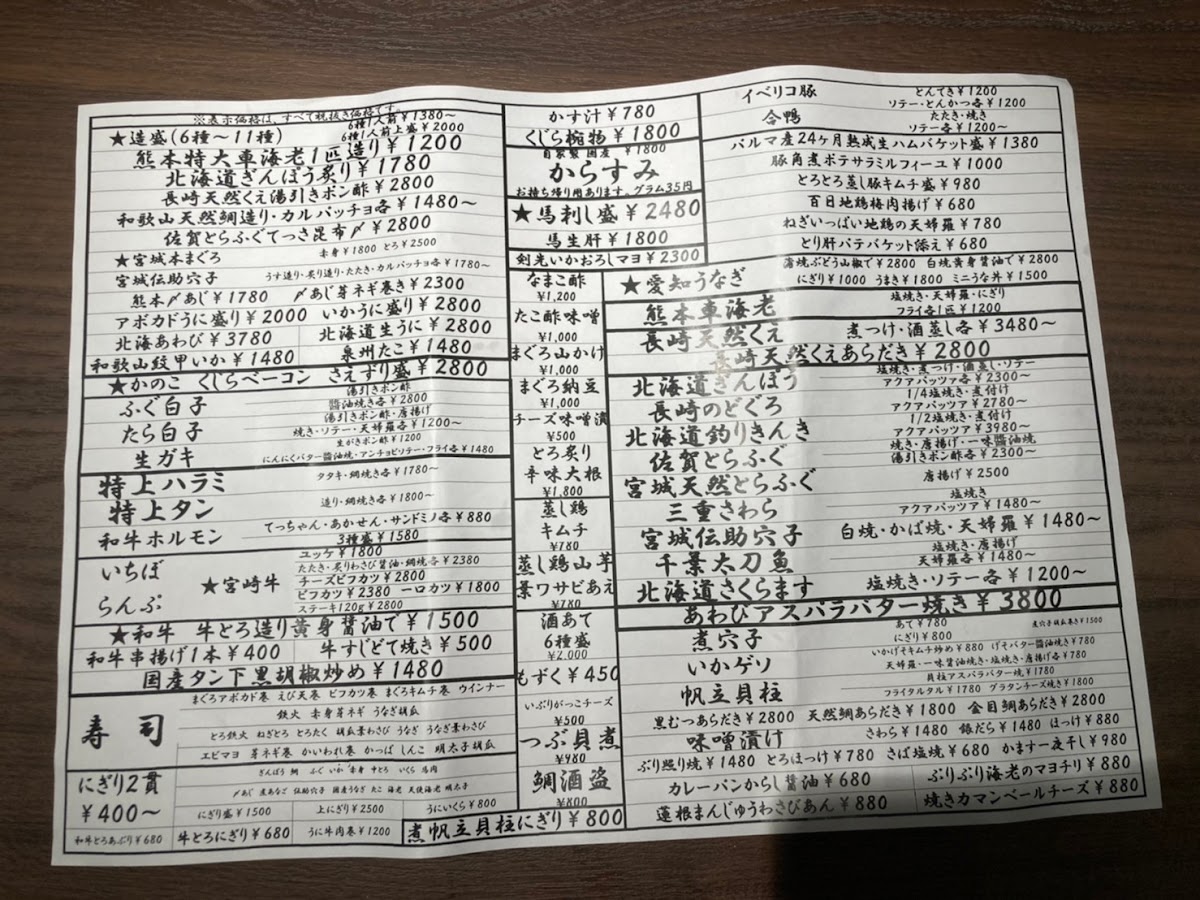 ※表示価格は、すべて税抜き価格です。
★造盛(6種〜11種)
6種1人前¥1380〜
6種1人前上盛¥2000
熊本特大車海老1匹造り¥1200
北海道ぎんぽう炙り¥1780
長崎天然くえ湯引きポン酢¥2800
和歌山天然鯛造り・カルパッチョ各¥1480〜
佐賀とらふぐてっさ昆布〆¥2800
★宮城本まぐろ 赤身¥1800 とろ¥2500
宮城伝助穴子 うす造り・炙り造り・たたき・カルパッチョ各¥1780〜
熊本〆あじ¥1780 〆あじ芽ネギ巻き¥2300
アボカドうに盛り¥2000 いかうに盛り¥2800
北海あわび¥3780 北海道生うに¥2800
和歌山紋甲いか¥1480 泉州たこ¥1480
★かのこ くじらベーコン さえずり盛¥2800
ふぐ白子
湯引きポン酢
醤油焼き各¥2800
たら白子
湯引きポン酢・唐揚げ
焼き・ソテー・天婦羅各¥1200〜
生ガキ
生がきポン酢¥1200
にんにくバター醤油焼・アンチョビソテー・フライ各¥1480
特上ハラミ タタキ・網焼き各¥1780〜
特上タン 造り・網焼き各¥1800〜
和牛ホルモン
てっちゃん・あかせん・サンドミノ各¥880
3種盛¥1580
いちぼ
らんぷ
★宮崎牛
ユッケ¥1800
たたき・炙りわさび醤油・網焼各¥2380
チーズビフカツ¥2800
ビフカツ¥2380 一口カツ¥1800
ステーキ120g¥2800
★和牛 牛とろ造り黄身醤油で¥1500
和牛串揚げ1本¥400 牛すじどて焼き¥500
国産タン下黒胡椒炒め¥1480
寿司
まぐろアボカド巻 えび天巻 ビフカツ巻 まぐろキムチ巻 ウインナー
鉄火 赤身芽ネギ うなぎ胡瓜
とろ鉄火 ねぎとろ とろたく 胡瓜葉わさび うなぎ うなぎ葉わさび
エビマヨ 芽ネギ巻 かいわれ巻 かっぱ しんこ 明太子胡瓜
にぎり2貫
¥400〜
ぎんぽう 鯛 ふぐ いか 赤身 中とろ いくら 馬肉
〆あじ 煮あなご 伝助穴子 国産うなぎ たこ 海老 天使海老 明太子
にぎり盛¥1500 上にぎり¥2500 うにいくら¥800
和牛とろあぶり¥680 牛とろにぎり¥680 うに牛肉巻¥1200
煮帆立貝柱にぎり¥800
かす汁¥780
くじら椀物¥1800
自家製 国産 ¥1800
からすみ
お持ち帰り用あります。グラム35円
★馬刺し盛¥2480
馬生肝¥1800
剣先いかおろしマヨ¥2300
なまこ酢
¥1,200
たこ酢味噌
¥1,000
まぐろ山かけ
¥1,000
まぐろ納豆
¥1,000
チーズ味噌漬
¥500
とろ炙り
辛味大根
¥1,800
蒸し鶏
キムチ
¥780
蒸し鶏山芋
葉ワサビあえ
¥780
酒あて
6種盛
¥2,000
もずく¥450
いぶりがっこチーズ
¥500
つぶ貝煮
¥980
鯛酒盗
¥800
イベリコ豚
とんてき¥1200
ソテー・とんかつ各¥1200
合鴨
たたき・焼き
ソテー各¥1200〜
パルマ産24ヶ月熟成生ハムバケット盛¥1380
豚角煮ポテサラミルフィーユ¥1000
とろとろ蒸し豚キムチ盛¥980
百日地鶏梅肉揚げ¥680
ねぎいっぱい地鶏の天婦羅¥780
とり肝パテバケット添え¥680
★愛知うなぎ
蒲焼ぶどう山椒で¥2800 白焼黄身醤油で¥2800
にぎり¥1000 うまき¥1800 ミニうな丼¥1500
熊本車海老
塩焼き・天婦羅・にぎり
フライ各1匹¥1200
長崎天然くえ 煮つけ・酒蒸し各¥3480〜
長崎天然くえあらだき¥2800
北海道ぎんぽう
塩焼き・煮つけ・酒蒸し・ソテー
アクアパッツァ各¥2300〜
長崎のどぐろ
1/4塩焼き・煮付け
アクアパッツァ¥2780〜
北海道釣りきんき
1/2塩焼き・煮付け
アクアパッツァ¥3980〜
佐賀とらふぐ
焼き・唐揚げ・一味醤油焼
湯引きポン酢各¥2300〜
宮城天然とらふぐ 唐揚げ¥2500
三重さわら
塩焼き
アクアパッツァ¥1480〜
宮城伝助穴子 白焼・かば焼・天婦羅¥1480〜
千葉太刀魚
塩焼き・唐揚げ
天婦羅各¥1480〜
北海道さくらます 塩焼き・ソテー各¥1200〜
あわびアスパラバター焼き¥3800
煮穴子
あて¥780 煮穴子胡瓜巻き¥1500
にぎり¥800
いかゲソ
いかげそキムチ炒め¥880 げそバター醤油焼き¥780
天婦羅・一味醤油焼き・塩焼き・唐揚げ各¥780
帆立貝柱
貝柱アスパラバター焼¥1780
フライタルタル¥1780 グラタンチーズ焼き¥1800
黒むつあらだき¥2800 天然鯛あらだき¥1800 金目鯛あらだき¥2800
味噌漬け さわら¥1480 銀だら¥1480 ほっけ¥880
ぶり照り焼¥1480 とろほっけ¥780 さば塩焼¥680 かます一夜干し¥980
カレーパンからし醤油¥680 ぷりぷり海老のマヨチリ¥880
蓮根まんじゅうわさびあん¥880 焼きカマンベールチーズ¥880